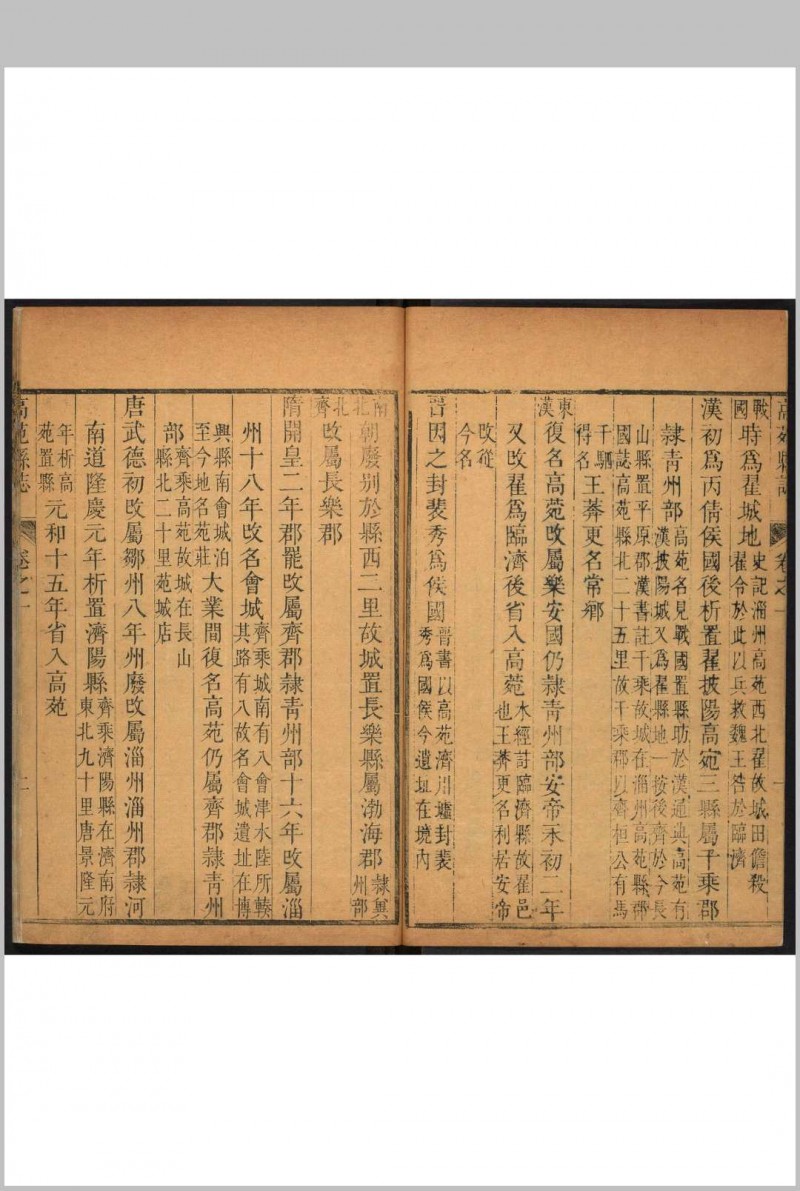 高苑縣志 卷之一
戰國時爲翟城地史記淄州高苑西北翟故城田儋殺翟令於此以兵救魏王咎於臨濟
漢初爲丙倩侯國後析置翟披陽高宛三縣屬千乘郡
隷青州部高苑名見戰國置縣昉於漢通典高苑有漢披陽城又爲翟縣地一按後齊於今長
山縣置平原郡漢書註千乘故城在淄州高苑縣郡國誌高苑縣北二十五里故千乘郡以齊桓公有馬
千駟得名王莽更名常鄉
東漢復名高菀改屬樂安國仍隷青州部安帝永初二年
又改翟爲臨濟後省入高苑水經註臨濟縣故翟邑也王莽更名利居安帝
改從今名
晉因之封裴秀爲侯國晉書以高苑濟川墟封裴秀爲國侯今遺址在境內
南北朝廢別於縣西二里故城置長樂縣屬渤海郡隷冀州部
北齊改屬長樂郡
隋開皇二年郡罷改屬齊郡隷青州部十六年改屬淄
州十八年改名會城齊乘城南有入會津水陸所輳其路有八故名會城遺址在博
興縣南會城泊至今地名苑莊大業間復名高苑仍屬齊郡隷青州
部齊乘高苑故城在長山縣北二十里苑城店
唐武德初改屬鄒州八年州廢改屬淄州淄州郡隷河
南道隆慶元年析置濟陽縣齊乘濟陽縣在濟南府東北九十里唐景隆元
年析高苑置縣元和十五年省入高苑
高苑縣志 卷之一 二